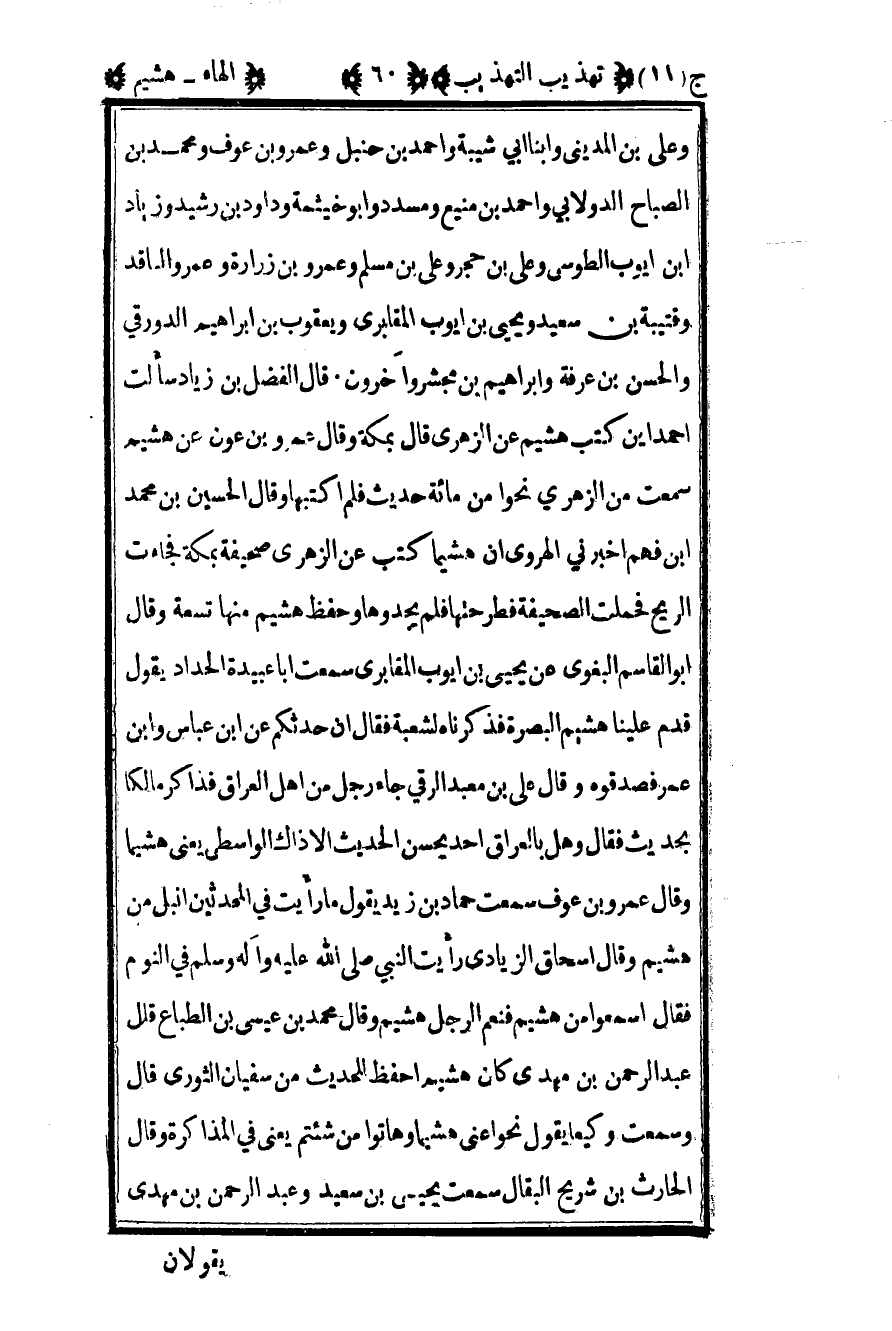 ج (١١) تهذيب التهذيب ٦٠ الهاء - هشيم
وعلى بن المدينى وابنا ابي شيبة واحمد بن حنبل وعمرو بن عوف ومحمد بن
الصباح الدولابي واحمد بن منيع ومسدد وابو خيثمة وداود بن رشيد وزياد
ابن ايوب الطوسى وعلى بن حجر وعلى بن مسلم وعمرو بن زرارة وعمرو الناقد
وقتيبة بن سعيد ويحيى بن ايوب المقابرى ويعقوب بن ابراهيم الدورقي
والحسن بن عرفة وابراهيم بن مجشر وآخرون · قال الفضل بن زياد سألت
احمد اين كتب هشيم عن الزهرى قال بمكة وقال عمرو بن عون عن هشيم
سمعت من الزهري نحوا من مائة حديث فلم اكتبها وقال الحسين بن محمد
ابن فهم اخبرني الهروى ان هشيما كتب عن الزهرى صحيفة بمكة فجاءت
الريح فحملت الصحيفة فطرحتها فلم يجدوها وحفظ هشيم منها تسعة وقال
ابوالقاسم البغوى عن يحيى بن ايوب المقابرى سمعت ابا عبيدة الحداد يقول
قدم علينا هشيم البصرة فذكرناه لشعبة فقال ان حدثكم عن ابن عباس وابن
عمر فصدقوه وقال على بن معبد الرقي جاء رجل من اهل العراق فذاكر مالكا
بحديث فقال وهل بالعراق احد يحسن الحديث الا ذاك الواسطى يعنى هشيما
وقال عمرو بن عوف سمعت حماد بن زيد يقول ما رأيت في المحدثين انبل من
هشيم وقال اسحاق الزيادى رأيت النبي صلى الله عليه وآله وسلم في النوم
فقال اسمعوا من هشيم فنعم الرجل هشيم وقال محمد بن عيسى بن الطباع قال
عبدالرحمن بن مهدى كان هشيم احفظ للحديث من سفيان الثورى قال
وسمعت وكيعا يقول نحوا عنى هشيما وهاتوا من شئتم يعنى في المذاكرة وقال
الحارث بن شريح البقال سمعت يحيى بن سعيد وعبد الرحمن بن مهدى
يقولان